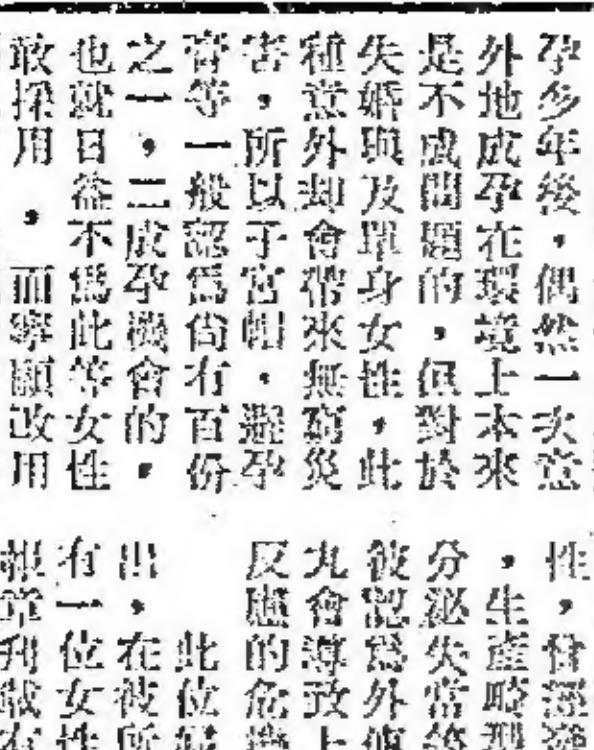 孕多年後，偶然一次意
外地成孕在環境上本來
是不成問題的，但對於
失婚與及單身女性，此
種意外却會帶來無窮災
害，所以子宮帽，避孕
膏等一般認爲尚有百份
之一，二成孕機會的，
也就日益不爲此等女性
敢採用，而寧願改用
性，曾經
，生產
分泌失常
彼認爲外
丸會導致
反應的危
此位
出，在彼所
有一位女性
報章刊載有